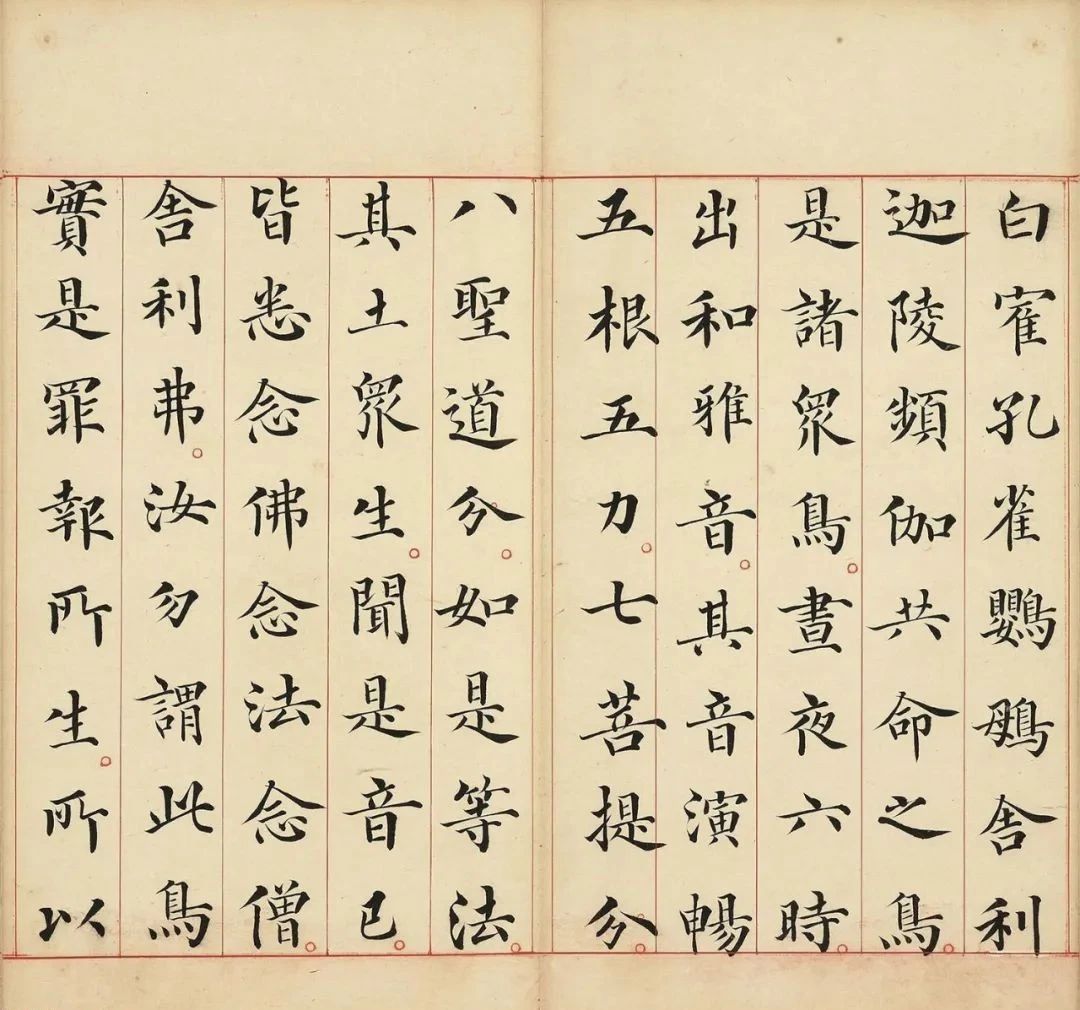 白寉孔雀鸚䳇舍利
迦陵頻伽共命之鳥。
是諸眾鳥。晝夜六時。
出和雅音。其音演暢
五根五力。七菩提分。
八聖道分。如是等法。
其土眾生。聞是音已。
皆悉念佛念法念僧。
舍利弗。汝勿謂此鳥
實是罪報所生。所以